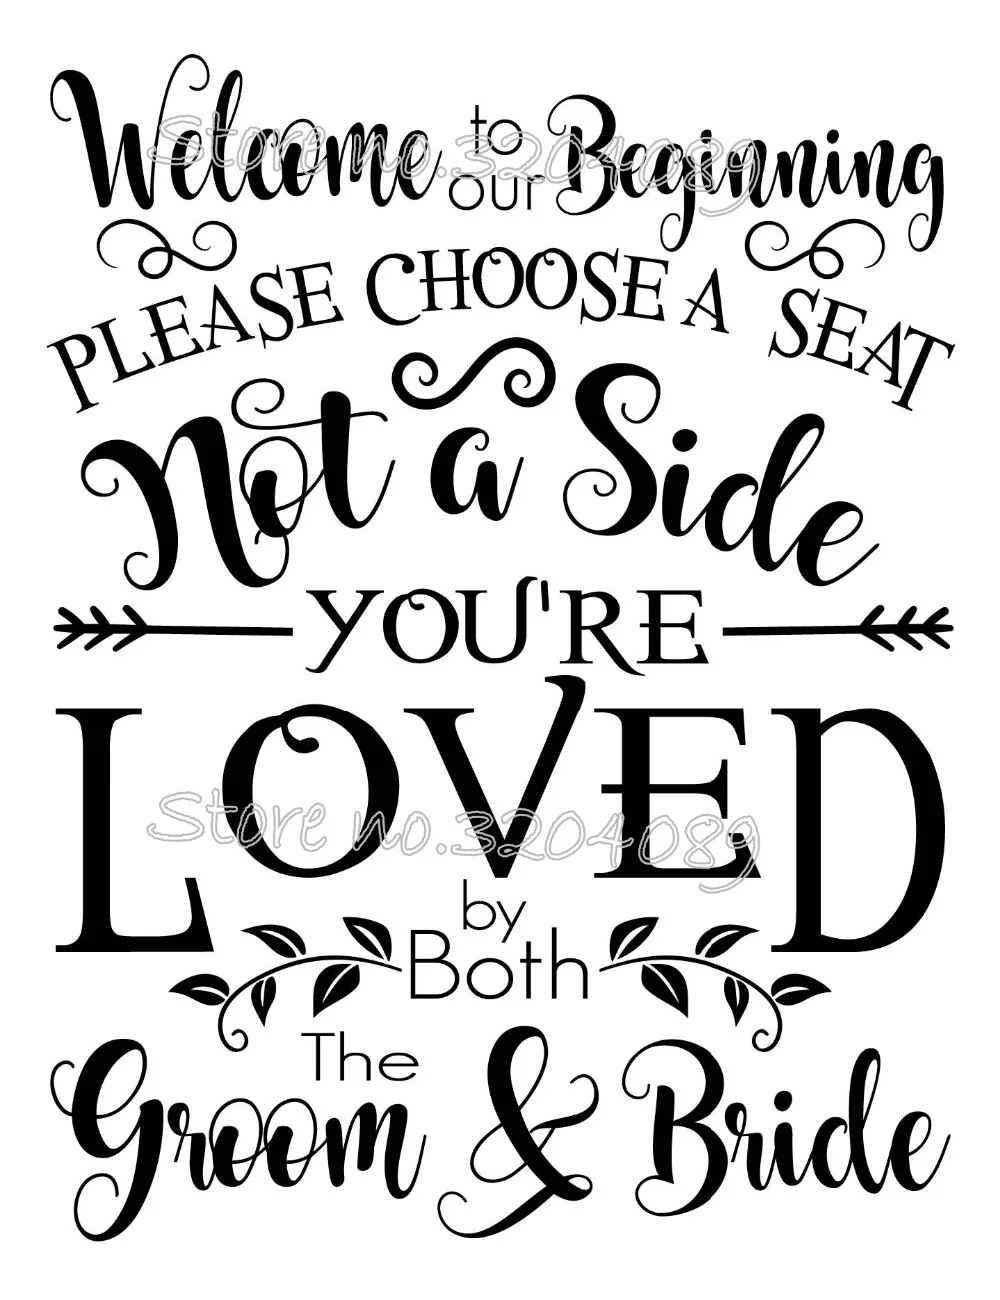 Welcome to our Beginning
Store no.3204089
PLEASE CHOOSE A SEAT
Not a Side
YOU'RE
LOVED
Store no.3204089
by
Both
The
Groom & Bride